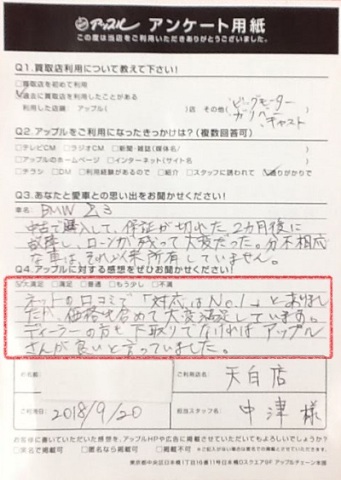 アップル アンケート用紙
この度は当店をご利用いただきありがとうございました。
Q1.買取店利用について教えて下さい!
□買取店を初めて利用
☑過去に買取店を利用したことがある
利用した店舗: アップル( )店 その他(ビッグモーター
ガリバー
キャスト
Q2.アップルをご利用になったきっかけは?(複数回答可)
□テレビCM □ラジオCM □新聞・雑誌(媒体名/ )
□アップルのホームページ □インターネット(サイト名 )
□チラシ □DM □利用経験があるので □紹介 □スタッフに誘われて ☑通りがかりで
Q3.あなたと愛車との思い出をお聞かせください!
車名: BMW Z3
中古で購入して、保証が切れた2カ月後に
故障し、ローンが残って大変だった。分不相応
な車は、それ以来所有していません。
Q4.アップルに対する感想をぜひお聞かせください!
☑大満足 □満足 □普通 □もう少し □不満
ネットの口コミで「対応はNo.1」とありまし
たが、価格も含めて大変満足しています。
ディーラーの方も下取りでなければアップル
さんが良いと言っていました。
お名前
ご利用店名: 天白店
ご利用日: 2018/9/20
担当スタッフ名: 中津様
お客様に書いていただいた感想を、アップルHPや広告に掲載させていただいてもよろしいでしょうか?
□実名で掲載可 □匿名なら掲載可 □掲載不可
東京都中央区日本橋1丁目16番11号日本橋DスクエアGF アップルチェーン本部